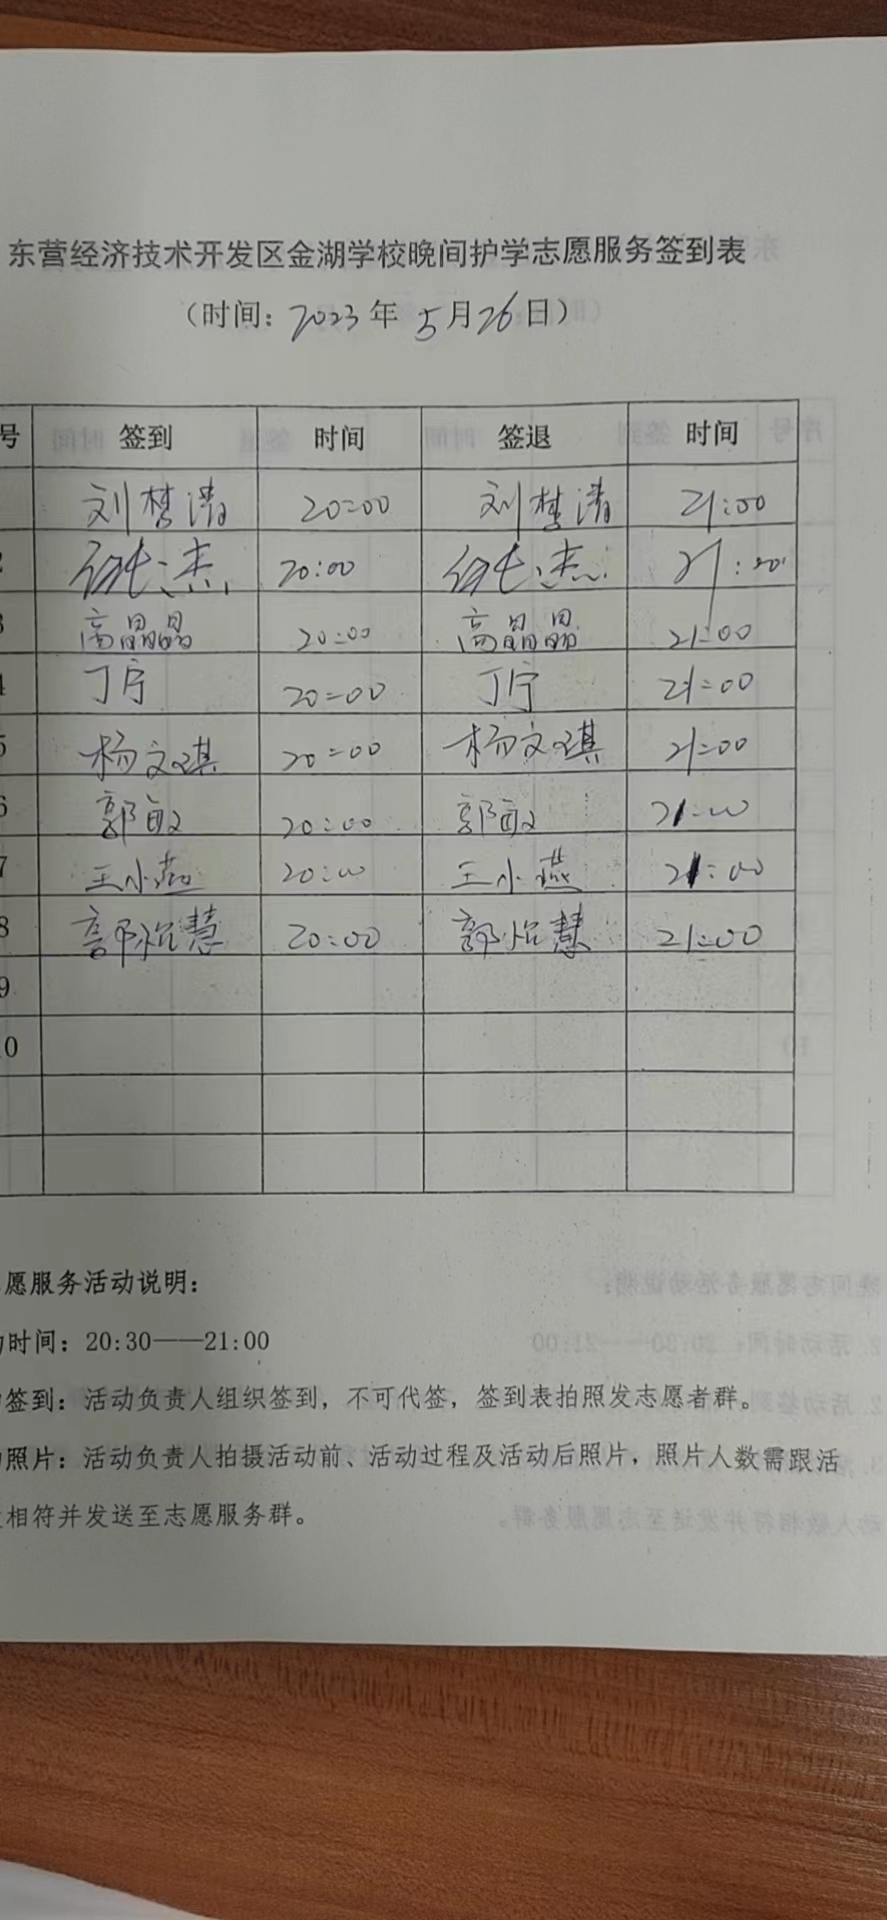 东营经济技术开发区金湖学校晚间护学志愿服务签到表
（时间：2023年5月26日）
号 签到 时间 签退 时间
刘梦清 20:00 刘梦清 21:00
2 20:00 21:00
3 高晶晶 20:00 高晶晶 21:00
4 丁宁 20:00 丁宁 21:00
5 杨文琪 20:00 杨文琪 21:00
6 郭敏 20:00 郭敏 21:00
7 王小燕 20:00 王小燕 21:00
8 郭怡慧 20:00 郭怡慧 21:00
9
0
愿服务活动说明：
时间：20:30——21:00
签到：活动负责人组织签到，不可代签，签到表拍照发志愿者群。
照片：活动负责人拍摄活动前、活动过程及活动后照片，照片人数需跟活
相符并发送至志愿服务群。